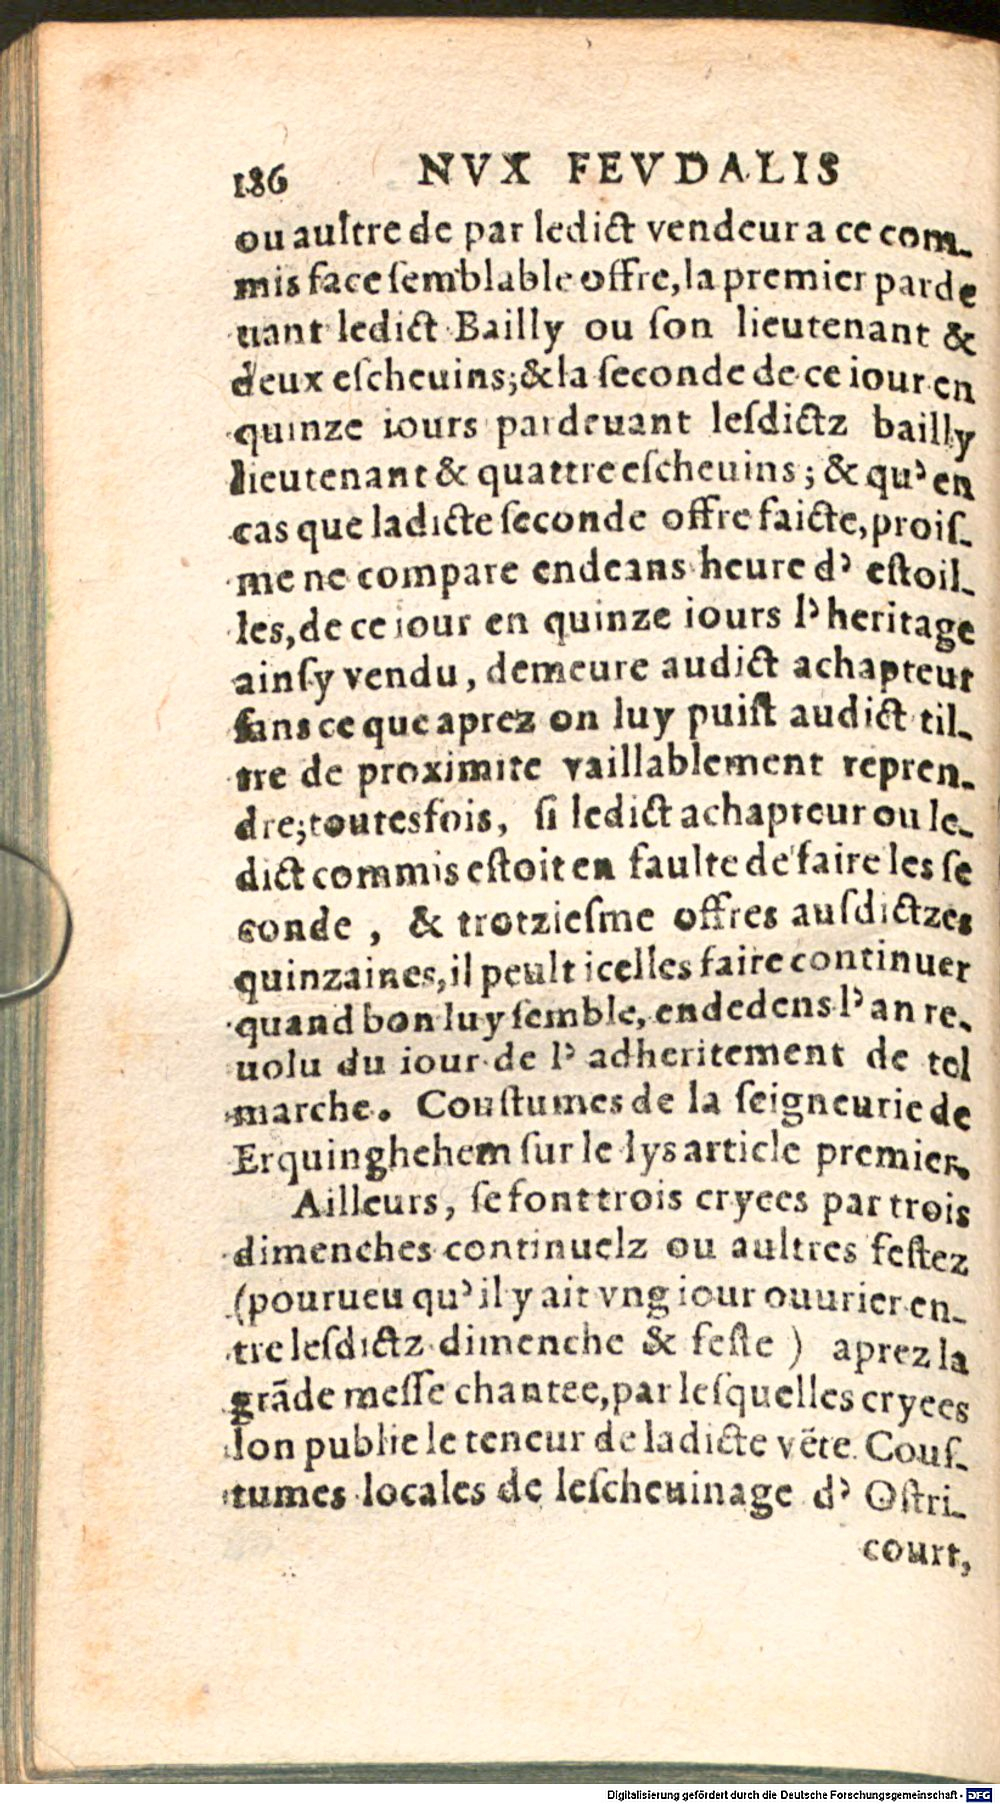 186 NVX FEVDALIS
ou aultre de par ledict vendeur a ce com-
mis face ſemblable offre, la premier parde
uant ledict Bailly ou ſon lieutenant &
deux eſcheuins; & la ſeconde de ce iour en
quinze iours pardeuant leſdictz bailly
lieutenant & quattre eſcheuins; & qu' en
cas que ladicte ſeconde offre faicte, proiſ-
me ne compare endeans heure d' eſtoil-
les, de ce iour en quinze iours l' heritage
ainſy vendu, demeure audict achapteur
ſans ce que aprez on luy puiſt audict til-
tre de proximite vaillablement repren-
dre; toutesfois, ſi ledict achapteur ou le-
dict commis eſtoit en faulte de faire les ſe
conde, & trotzieſme offres auſdictzes
quinzaines, il peult icelles faire continuer
quand bon luy ſemble, endedens l' an re-
uolu du iour de l' adheritement de tel
marche. Couſtumes de la ſeigneurie de
Erquinghehem ſur le lys article premier.
Ailleurs, ſe font trois cryees par trois
dimenches continuelz ou aultres feſtez
(pourueu qu' il y ait vng iour ouurier en-
tre leſdictz dimenche & feſte) aprez la
grāde meſſe chantee, par leſquelles cryees
lon publie le teneur de ladicte vēte. Couſ-
tumes locales de leſcheuinage d' Oſtri-
court,
Digitalisierung gefördert durch die Deutsche Forschungsgemeinschaft - DFG